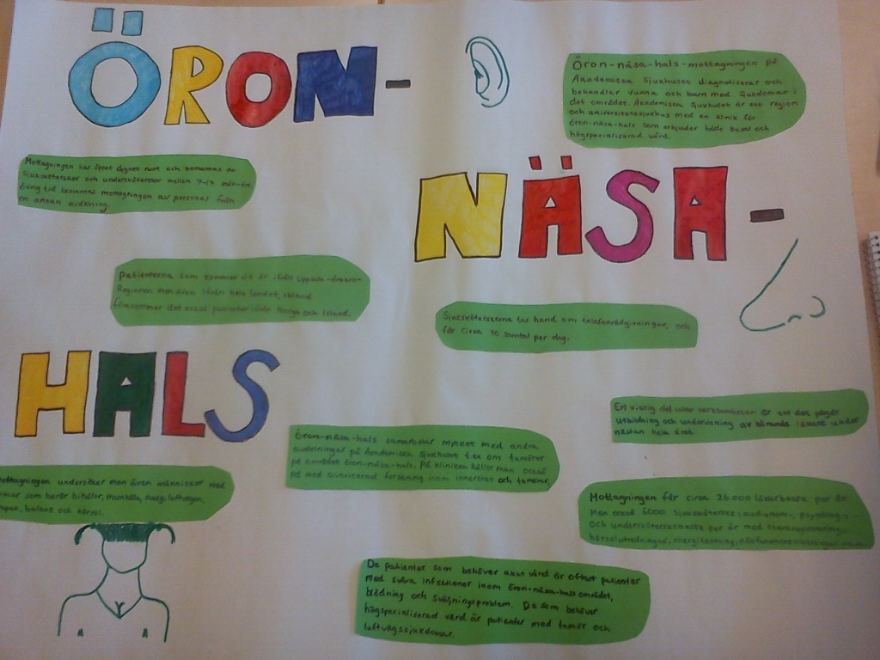 ÖRON-
Öron-näsa-hals-mottagningen på
Akademiska Sjukhuset diagnotiserar och
behandlar vuxna och barn med sjukdomar i
det området. Akademiska Sjukhuset är ett region
och universitetssjukhus med en klinik för
öron-näsa-hals som erbjuder både basal och
högspecialiserad vård.
Mottagningen har öppet dygnet runt och bemannas av
sjuksköterskor och undersköterskor mellan
till bemannas mottagningen av personal från
en annan avdelning.
NÄSA-
Patienterna som kommer dit är ifrån Uppsala-Örebro-
Regionen men även ifrån hela landet, ibland
förekommer det också patienter ifrån Norge och Island.
Sjuksköterskorna tar hand om telefonrådgivningar, och
får cirka 70 samtal per dag.
HALS
En viktig del utav verksamheten är att det pågår
utbildning och undervisning av blivande läkare under
nästan hela året.
Öron-näsa-hals samarbetar mycket med andra
avdelningar på Akademiska Sjukhuset t.ex om tumörer
på området öron-näsa-hals. På kliniken håller man också
på med avancerad forskning inom innerörat och tumörer.
Mottagningen undersöker man även människor med
som berör bihålor, munhåla, svalg, luftvägar,
balans och hörsel.
Mottagningen får cirka 26 000 läkarbesök per år.
Men också 6000 sjuksköterske-, audionom-, psykolog-
och undersköterskebesök per år med
De patienter som behöver akut vård är oftast patienter
med svåra infektioner inom öron-näsa-hals området,
blödning och sväljningsproblem. De som behöver
högspecialiserad vård är patienter med tumör och
luftvägssjukdomar.